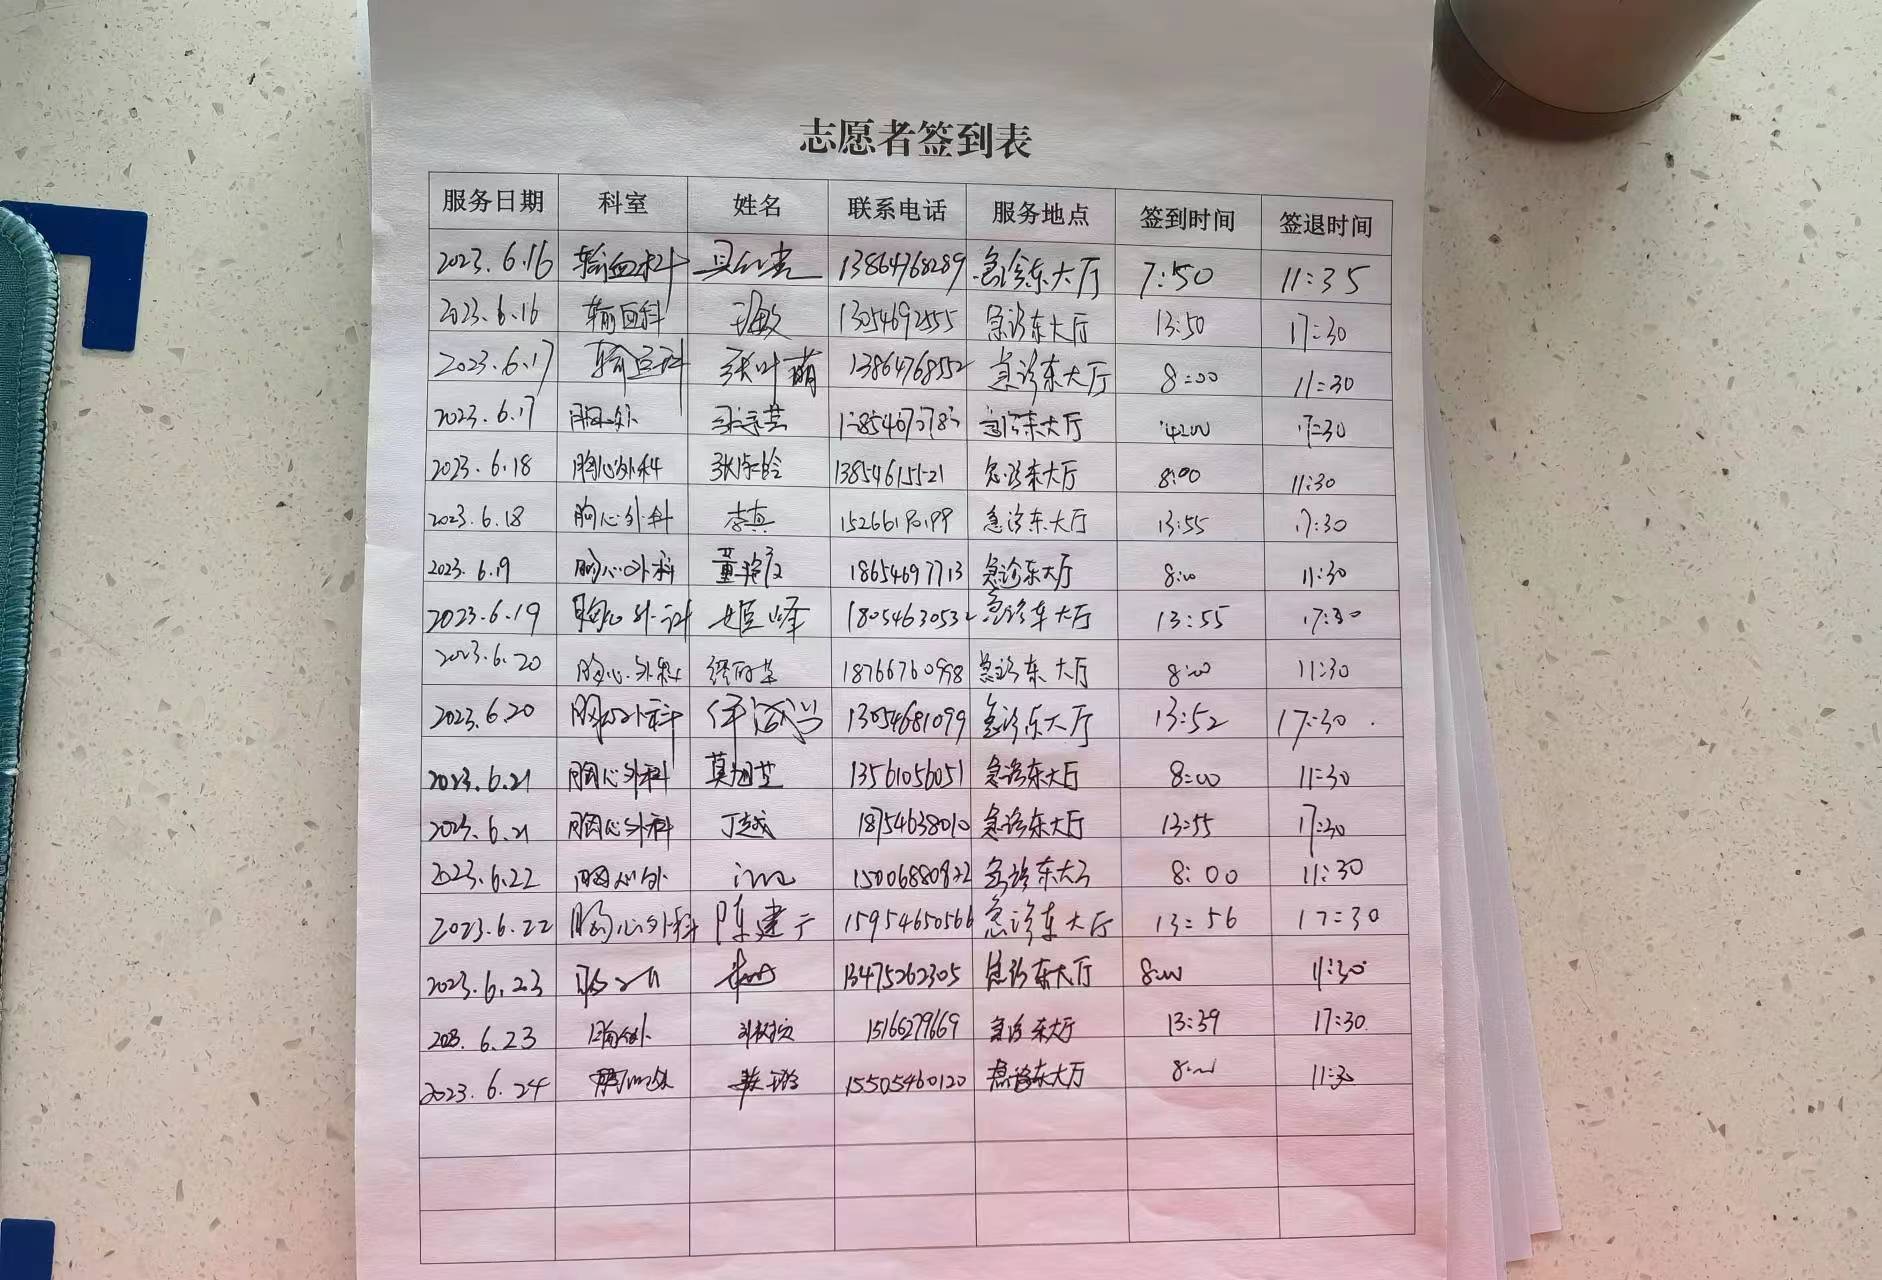 志愿者签到表
服务日期 科室 姓名 联系电话 服务地点 签到时间 签退时间
2023.6.16 输血科 13864768289 急诊东大厅 7:50 11:35
2023.6.16 输血科 13054692555 急诊东大厅 13:50 17:30
2023.6.17 输血科 张叶萌 13864768552 急诊东大厅 8:00 11:30
2023.6.17 胸外 急诊东大厅 17:30
2023.6.18 胸心外科 13854615521 急诊东大厅 8:00 11:30
2023.6.18 胸心外科 李真 15266190199 急诊东大厅 13:55 17:30
2023.6.19 胸心外科 18654697713 急诊东大厅 8:00 11:30
2023.6.19 胸心外科 姬峰 18054630532 急诊东大厅 13:55 17:30
2023.6.20 胸心外科 18766760998 急诊东大厅 8:00 11:30
2023.6.20 胸心外科 13054681099 急诊东大厅 13:52 17:30
2023.6.21 胸心外科 13561056051 急诊东大厅 8:00 11:30
2023.6.21 胸心外科 丁越 18754638010 急诊东大厅 13:55 17:30
2023.6.22 胸心外 15006880822 急诊东大厅 8:00 11:30
2023.6.22 胸心外科 陈建 15954650566 急诊东大厅 13:56 17:30
2023.6.23 13475262305 急诊东大厅 8:00 11:30
2023.6.23 胸外 15166279669 急诊东大厅 13:39 17:30
2023.6.24 胸心外 15505460120 急诊东大厅 8:00 11:30